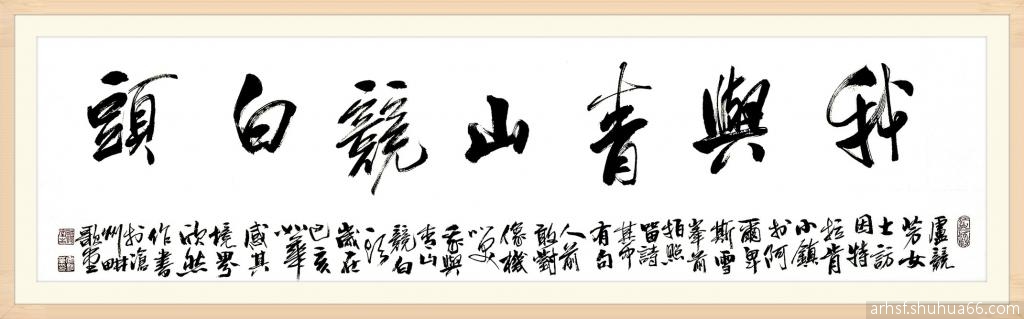 我與青山競白頭
盧競
女
士訪
因特
拉肯
小鎮
於阿
爾卑
斯雪
峯前
拍照
留詩
其中
有句
人前
敢對
像機
笑
我與
青山
競白
頭
歲在
己亥
華
感其
境界
欣然
作書
於滄
州
歌
arhsf.shuhua66.com